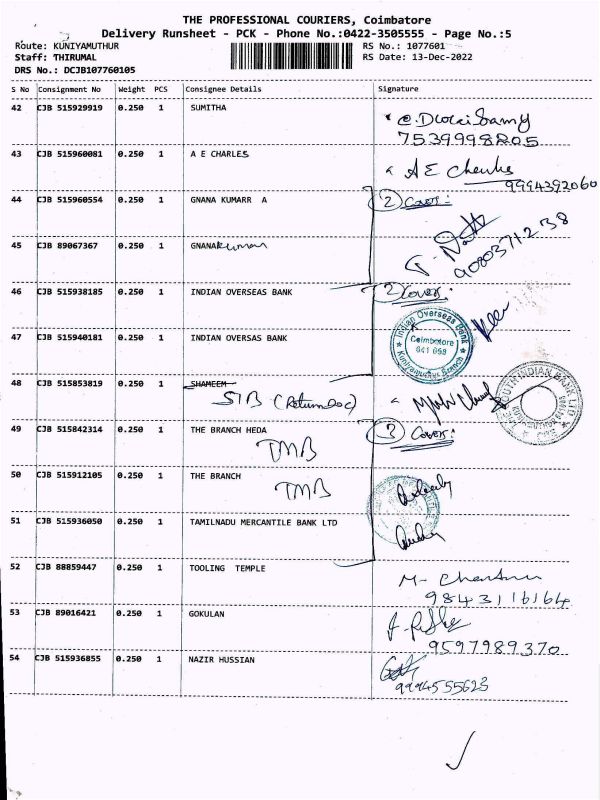 THE PROFESSIONAL COURIERS, Coimbatore
Delivery Runsheet - PCK - Phone No.:0422-3505555 - Page No.:5
Route: KUNIYAMUTHUR RS No.: 1077601
Staff: THIRUMAL RS Date: 13-Dec-2022
DRS No.: DCJB107760105
S No Consignment No Weight PCS Consignee Details Signature
42 CJB 515929919 0.250 1 SUMITHA
7539998205
43 CJB 515960081 0.250 1 A E CHARLES A E Charles
9994392060
44 CJB 515960554 0.250 1 GNANA KUMARR A 2 Cover:
45 CJB 89067367 0.250 1 GNANAkumar
9080371238
46 CJB 515938185 0.250 1 INDIAN OVERSEAS BANK 2 Cover:
Indian Overseas Bank
Coimbatore
641 008
Kuniyamuthur Branch
47 CJB 515940181 0.250 1 INDIAN OVERSEAS BANK
48 CJB 515853819 0.250 1 SHAMEEM
SIB (Return Doc)
SOUTH INDIAN BANK LTD
49 CJB 515842314 0.250 1 THE BRANCH HEDA 3 Cover:
TMB
50 CJB 515912105 0.250 1 THE BRANCH
TMB
51 CJB 515936050 0.250 1 TAMILNADU MERCANTILE BANK LTD
52 CJB 88859447 0.250 1 TOOLING TEMPLE
9843116164
53 CJB 89016421 0.250 1 GOKULAN
9597989370
54 CJB 515936855 0.250 1 NAZIR HUSSIAN
9994555623